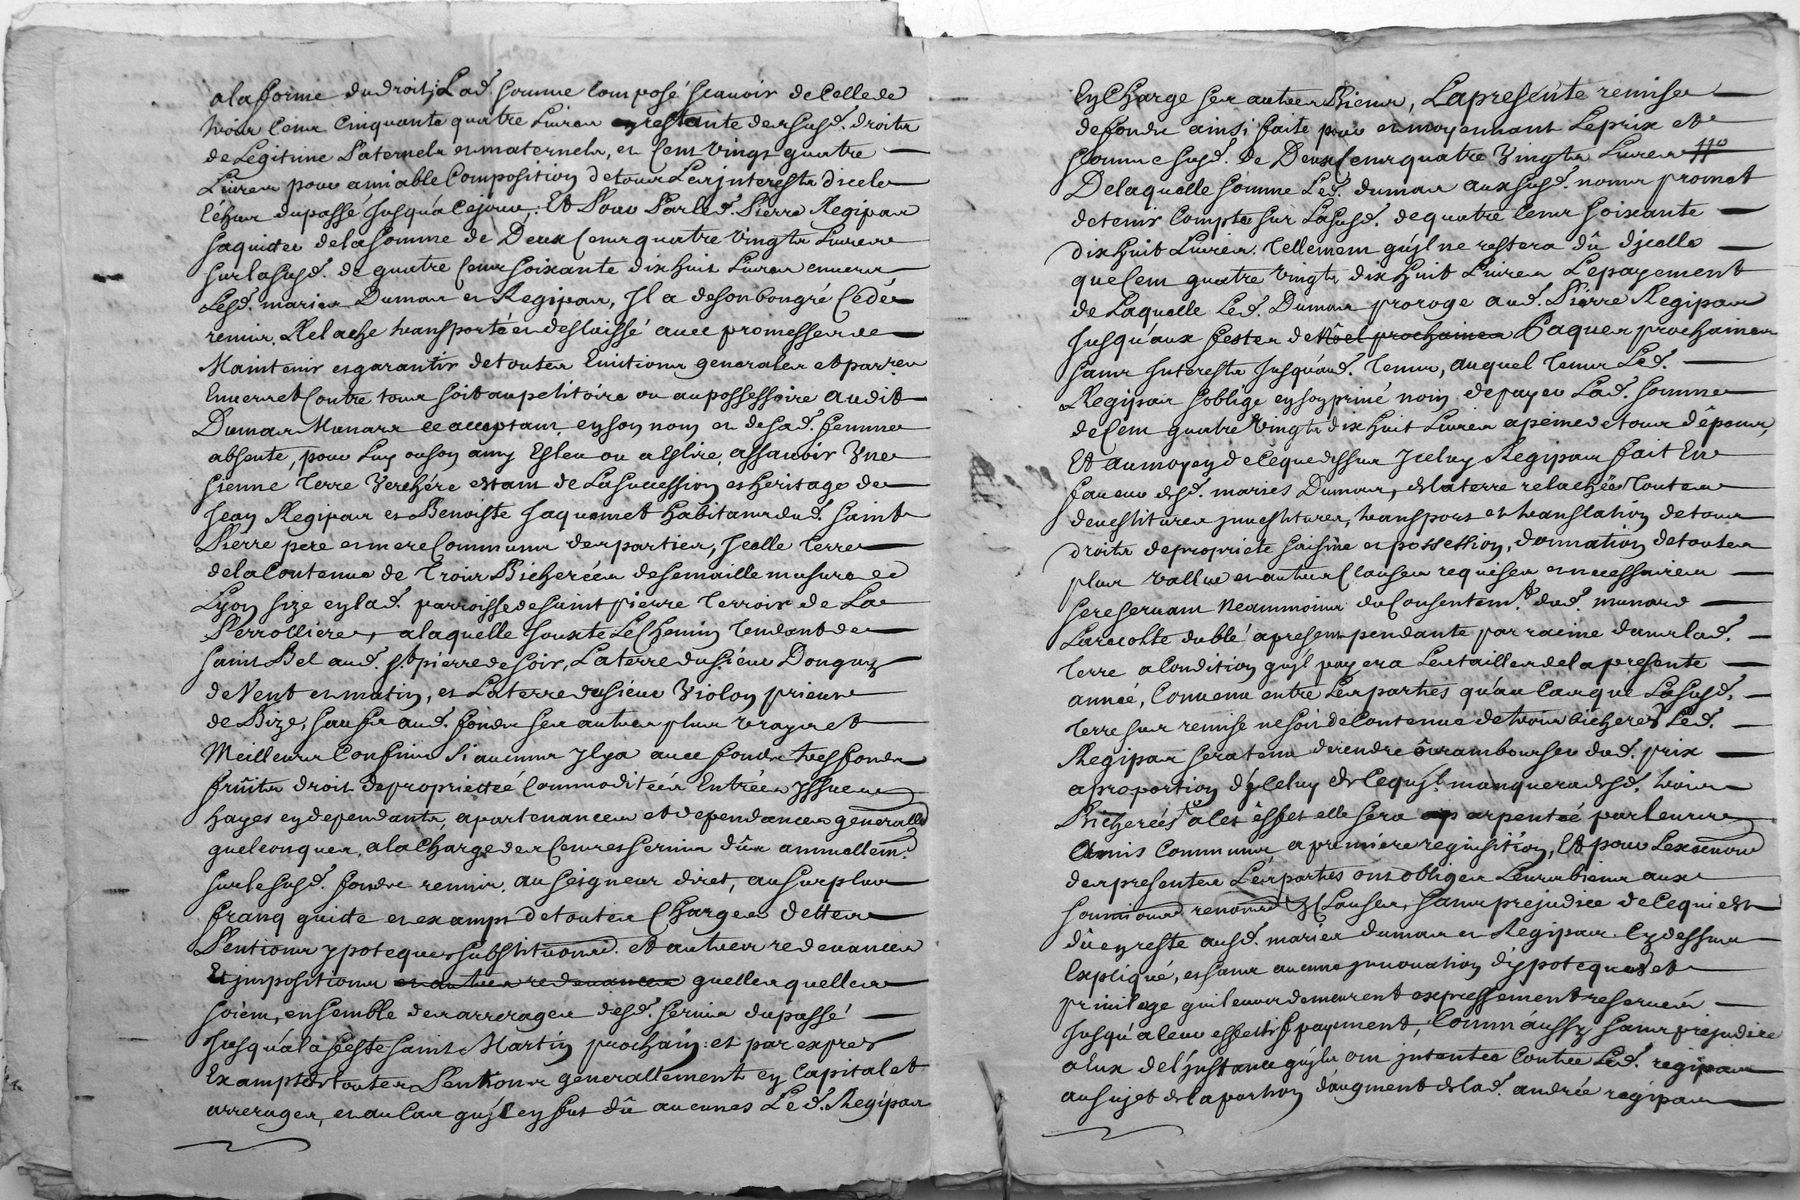 a la forme du droit, Lad. somme composé scauoir de Celle de
trois Cens Cinquante quatre Liures restante des susd. droits
de Legitime Paternels et maternels, et Cent vingt quatre
Liures pour amiable Composition de tous Les jnterests d'icele
Echus du passé Jusqu'a Ce jour; Et Pour Par Led. Pierre Regipas
saquiter de la somme de Deux Cens quatre vingts Liures
sur la susd. de quatre Cens soixante dix huit Liures enuers
Lesd. mariés Dumas et Regipas, Jl a de son bon gré Cédé
remis, Relaché transporté et deslaissé auec promesses de
Maintenir et garantir de toutes Euictions generales et parres
Enuers et Contre tous soit au petitoire ou au possessoire audit
Dumas Munard ce acceptant en son nom et de sad. femme
absente, pour Luy ou son amy Esleu ou a Eslire, assauoir Vne
sienne Terre Verchére estant de La succession et heritage de
Jean Regipas et Benoiste Jaquemet habitans dud. saint
Pierre pere et mere Communs des parties, Jcelle Terre
de la Contenue de Trois Bicherées de semaille mesure de
Lyon size en lad. parroisse de saint pierre Terroir de La
Perrolliere, a laquelle Jouxte Le Chemin Tendant de
saint Bel aud. st. pierre de soir, La terre du sieur Donguy
de Vent et matin, et La terre du sieur Violon prieur
de Bize, sauf su aud. fonds ses autres plus vrays et
Meilleurs Confins si aucuns Jl y a auec fonds tresfonds
fruits droit de proprietté Commoditées Entrées yssues
hayes en dependants, apartenances et dependances generalles
quelconques, a la Charge des Cens et seruis dûs annuellemt.
sur le susd. fonds remis, au seigneur diret, au surplus
franq quitte et exampt de toutes Charges dettes
Pentions ypoteques substitutions et autres redeuances
Et jmpositions et autres redeuances quelles quelles
soient, ensemble des arrerages desd. seruis du passé
Jusqu'a la feste saint Martin prochain: et par expres
Exampte de toutes Pentions generallement en Capital et
arrerages, et au Cas qu'jl en fut dû aucunes Led. Regipas
En Charge ses autres Biens, La presente remise
de fonds ainsi faite pour et moyennant Le prix et
somme susd. de Deux Cens quatre Vingts Liures
De laquelle somme Led. dumas aux susd. noms promet
de tenir Compte sur La susd. de quatre Cens soixante
dix huit Liures. Tellement qu'jl ne restera dû d'jcelle
que Cent quatre vingts dix huit Liures Le payement
de Laquelle Led. Dumas proroge aud. Pierre Regipas
Jusqu'aux festes de Nôel prochaines Paques prochaines
sans Jnterests Jusqu'aud. Tems, auquel Tems Led.
Regipas s'oblige en son priué nom de payer Lad. somme
de Cent quatre Vingts dix huit Liures a peine de tous dêpens,
Et au moyen de Ce que dessus Jceluy Regipas fait En
faueur desd. mariés Dumas, de la terre relachée Toutes
deuestitures jnuestitures, transport et translation de tous
droits de proprieté saisine et possession, donnation de toutes
plus vallue et autres Clauses requises et necessaires
se reseruant Neanmoins du Consentemt. dud. munard
La recolte du blé a present pendante par racine dans lad.
Terre a Condition qu'jl payera Les tailles de la presente
année, Conuenu entre Les parties qu'au Cas que La susd.
Terre sus remise ne soit de Contenue de trois bicherées Led.
Regipas sera tenu de rendre ou rambourser dud. prix
a proportion d'jceluy de Ce qu'jl manquera desd. trois
Bicherées a Cet êffet elle sera arpentée par leurs
Amis Communs a premiere requisition, Et pour L'exécution
des presentes Les parties ont obligés Leurs biens aux
soumissions renonciations & Clauses, sans prejudice de Ce qui est
dû en reste ausd. mariés dumas et Regipas Cy dessus
Expliqué, et sans aucune jnnouation d'ypoteques et
priuilege qui leurs demeurent expressement reserués
Jusqu'a leur effectif payement, Comm'aussy sans prejudice
a Eux de l'jnstance qu'jls ont jntentée Contre Led. regipas
au sujet de la portion d'augment de lad. andrée regipas